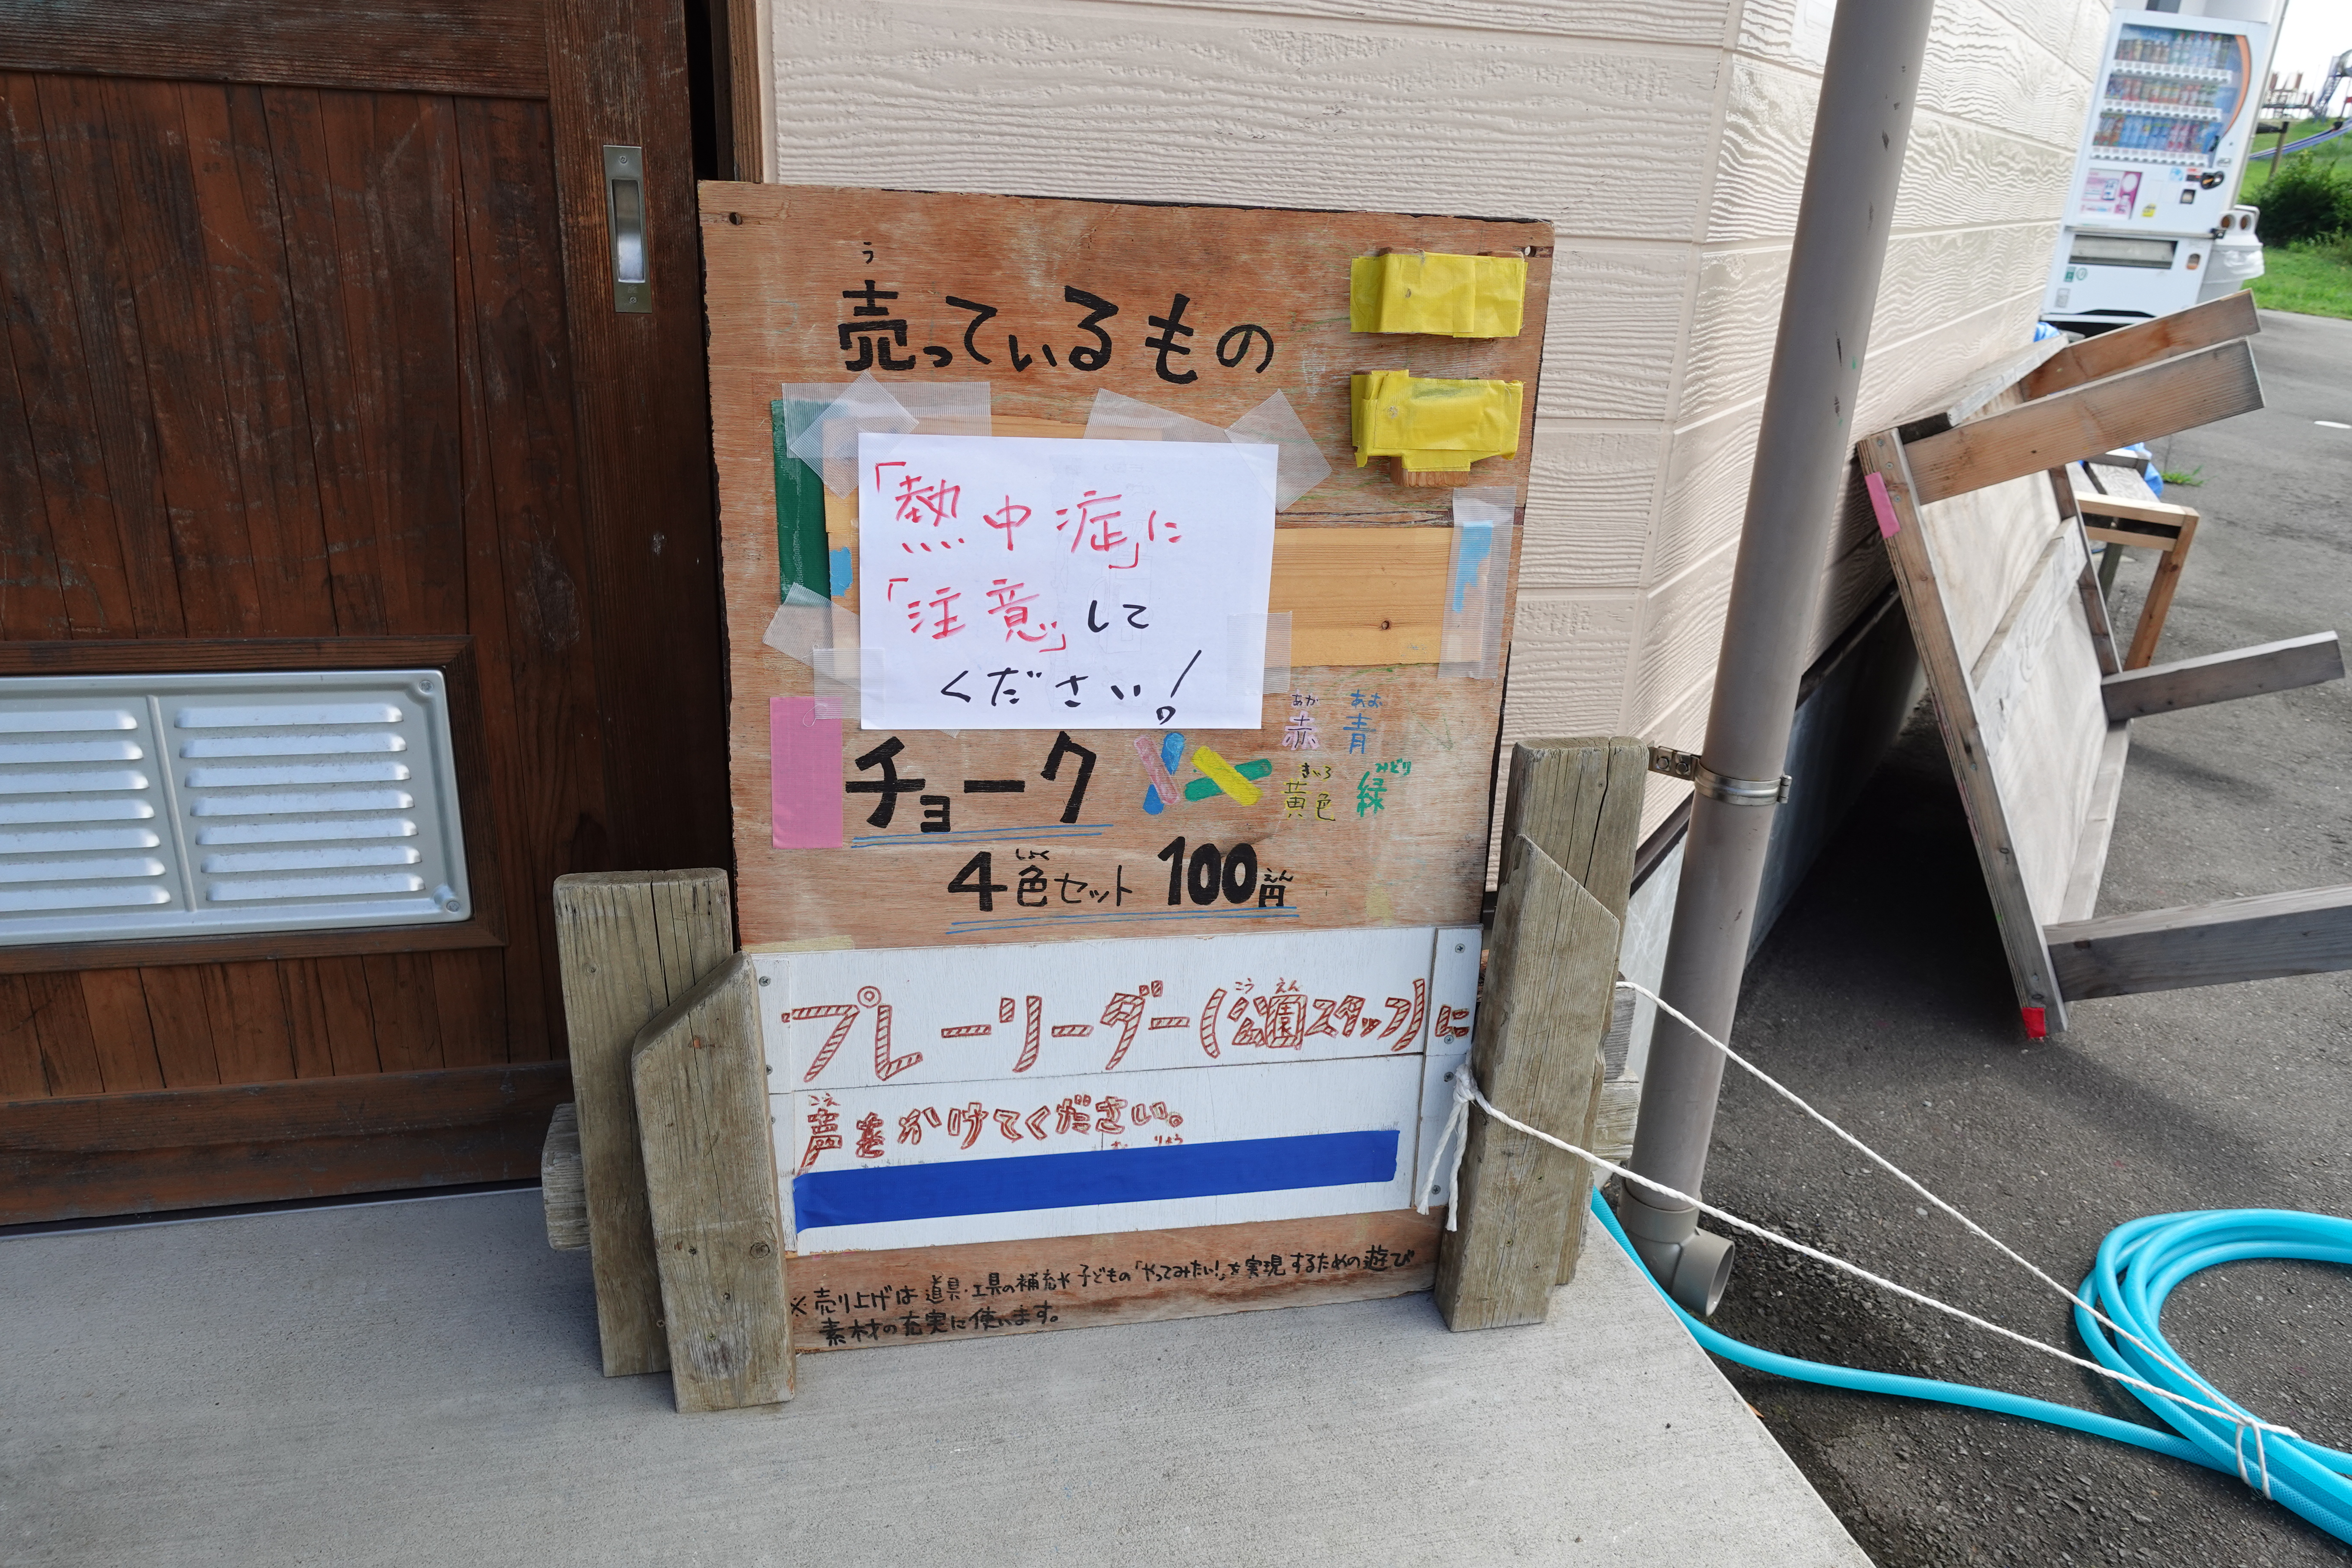 う
売っているもの
「熱中症」に
「注意」して
ください!
チョーク
あか あお
赤 青
きいろ みどり
黄色 緑
しょく えん
4色セット 100円
こう えん
プレーリーダー(公園スタッフ)に
こえ
声をかけてください。
りょう
※売り上げは道具・工具の補充や子どもの「やってみたい!」を実現するための遊び
素材の充実に使います。